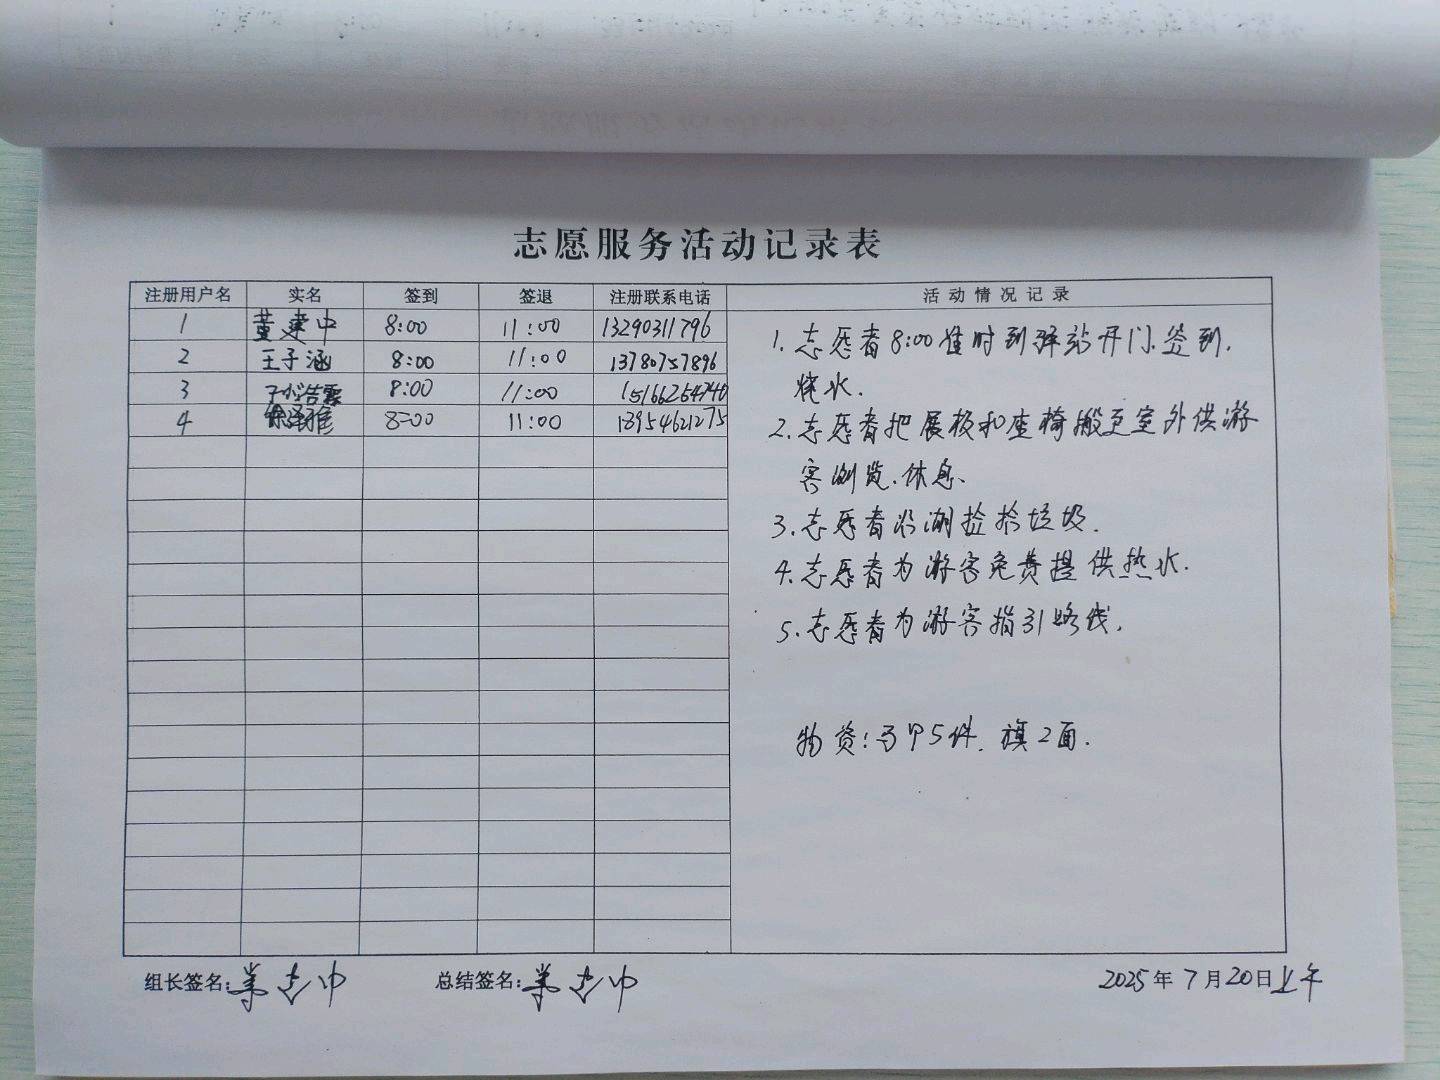 志愿服务活动记录表
注册用户名 实名 签到 签退 注册联系电话 活动情况记录
1 董建中 8:00 11:00 13290311796
2 王子涵 8:00 11:00 13780757896
3 浩霖 8:00 11:00 15166254740
4 徐泽雅 8:00 11:00 13954621275
1.志愿者8:00准时到驿站开门.签到.
烧水.
2.志愿者把展板和座椅搬至室外供游
客浏览.休息.
3.志愿者沿湖捡拾垃圾.
4.志愿者为游客免费提供热水.
5.志愿者为游客指引路线.
物资:马甲5件.旗2面.
组长签名: 总结签名: 2025年7月20日上午